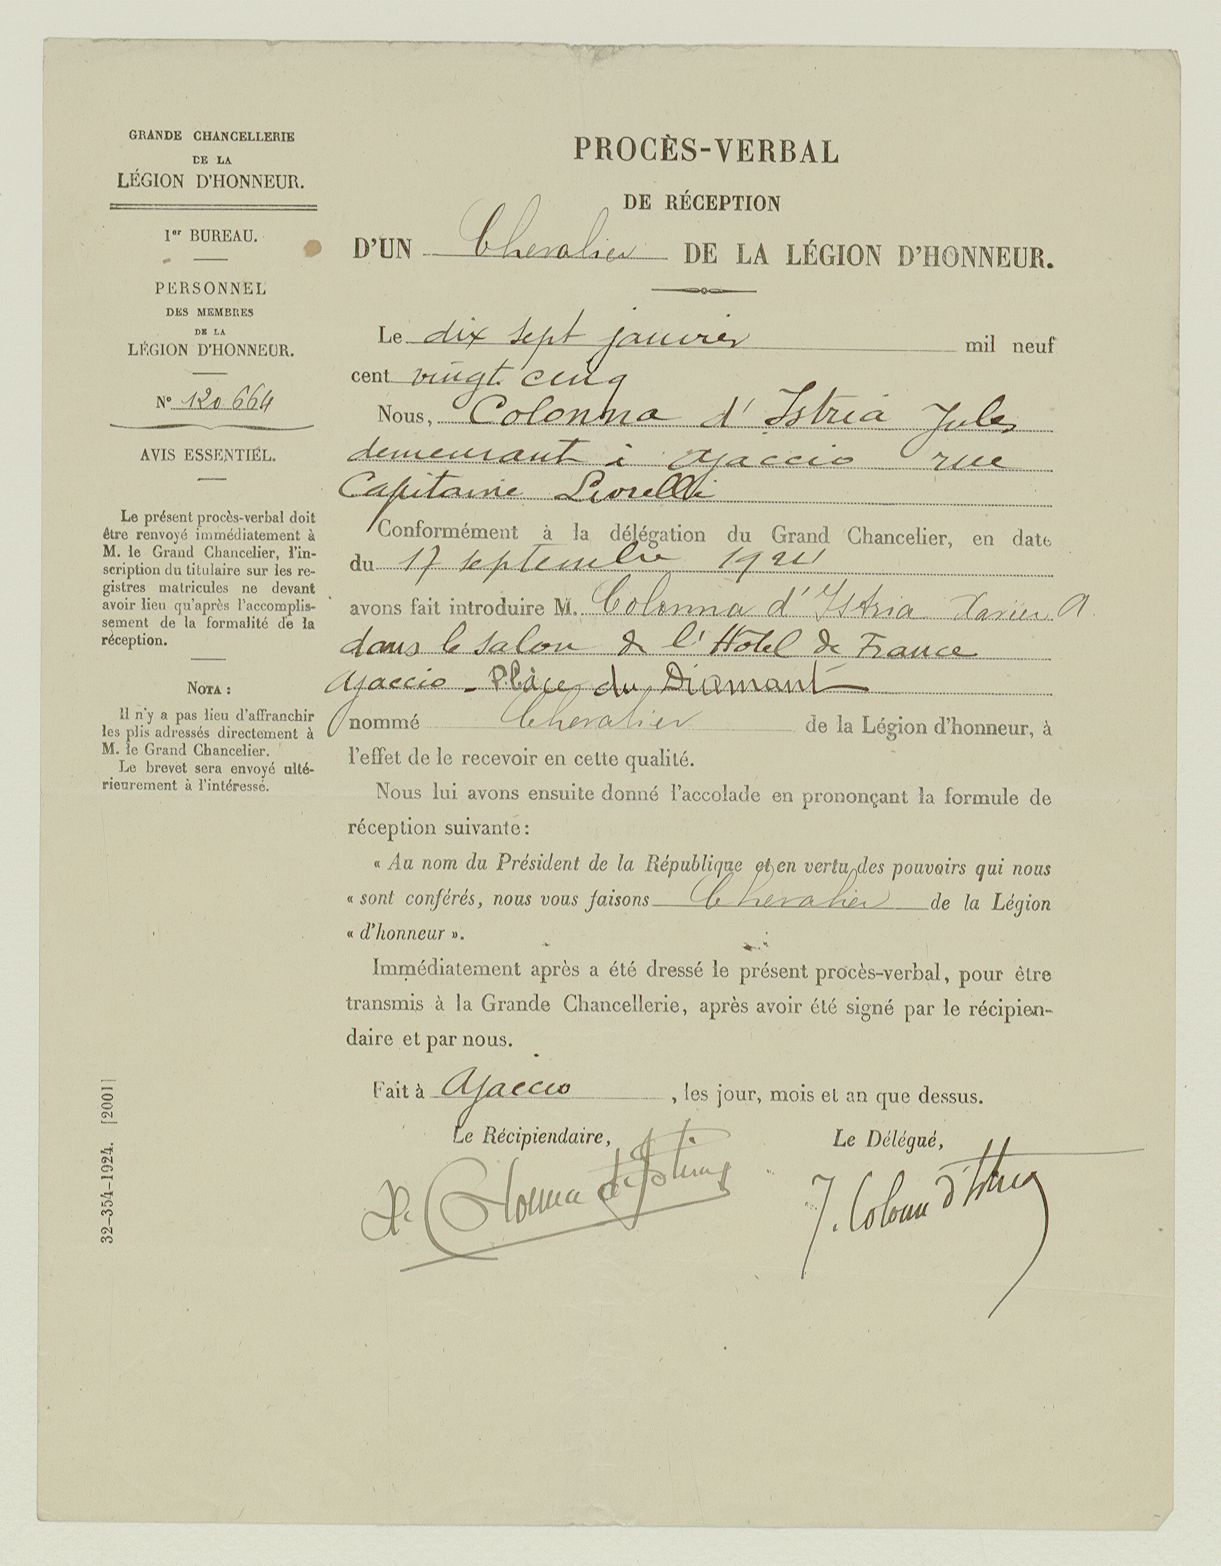 GRANDE CHANCELLERIE
DE LA
LÉGION D'HONNEUR.
1er BUREAU.
PERSONNEL
DES MEMBRES
DE LA
LÉGION D'HONNEUR.
N° 120 664
AVIS ESSENTIEL.
Le présent procès-verbal doit
être renvoyé immédiatement à
M. le Grand Chancelier, l'in-
scription du titulaire sur les re-
gistres matricules ne devant
avoir lieu qu'après l'accomplis-
sement de la formalité de la
réception.
NOTA :
Il n'y a pas lieu d'affranchir
les plis adressés directement à
M. le Grand Chancelier.
Le brevet sera envoyé ulté-
rieurement à l'intéressé.
32-354-1924. [2001]
PROCÈS-VERBAL
DE RÉCEPTION
D'UN Chevalier DE LA LÉGION D'HONNEUR.
Le dix sept janvier mil neuf
cent vingt cinq
Nous, Colonna d'Istria Jules
demeurant à Ajaccio rue
Capitaine Livrelli
Conformément à la délégation du Grand Chancelier, en date
du 17 septembre 1924
avons fait introduire M. Colonna d'Istria Xavier A
dans le salon de l'Hôtel de France
Ajaccio - Place du Diamant
nommé Chevalier de la Légion d'honneur, à
l'effet de le recevoir en cette qualité.
Nous lui avons ensuite donné l'accolade en prononçant la formule de
réception suivante :
« Au nom du Président de la République et en vertu des pouvoirs qui nous
« sont conférés, nous vous faisons Chevalier de la Légion
« d'honneur ».
Immédiatement après a été dressé le présent procès-verbal, pour être
transmis à la Grande Chancellerie, après avoir été signé par le récipien-
daire et par nous.
Fait à Ajaccio, les jour, mois et an que dessus.
Le Récipiendaire, Le Délégué,
X. Colonna d'Istria J. Colonna d'Istria